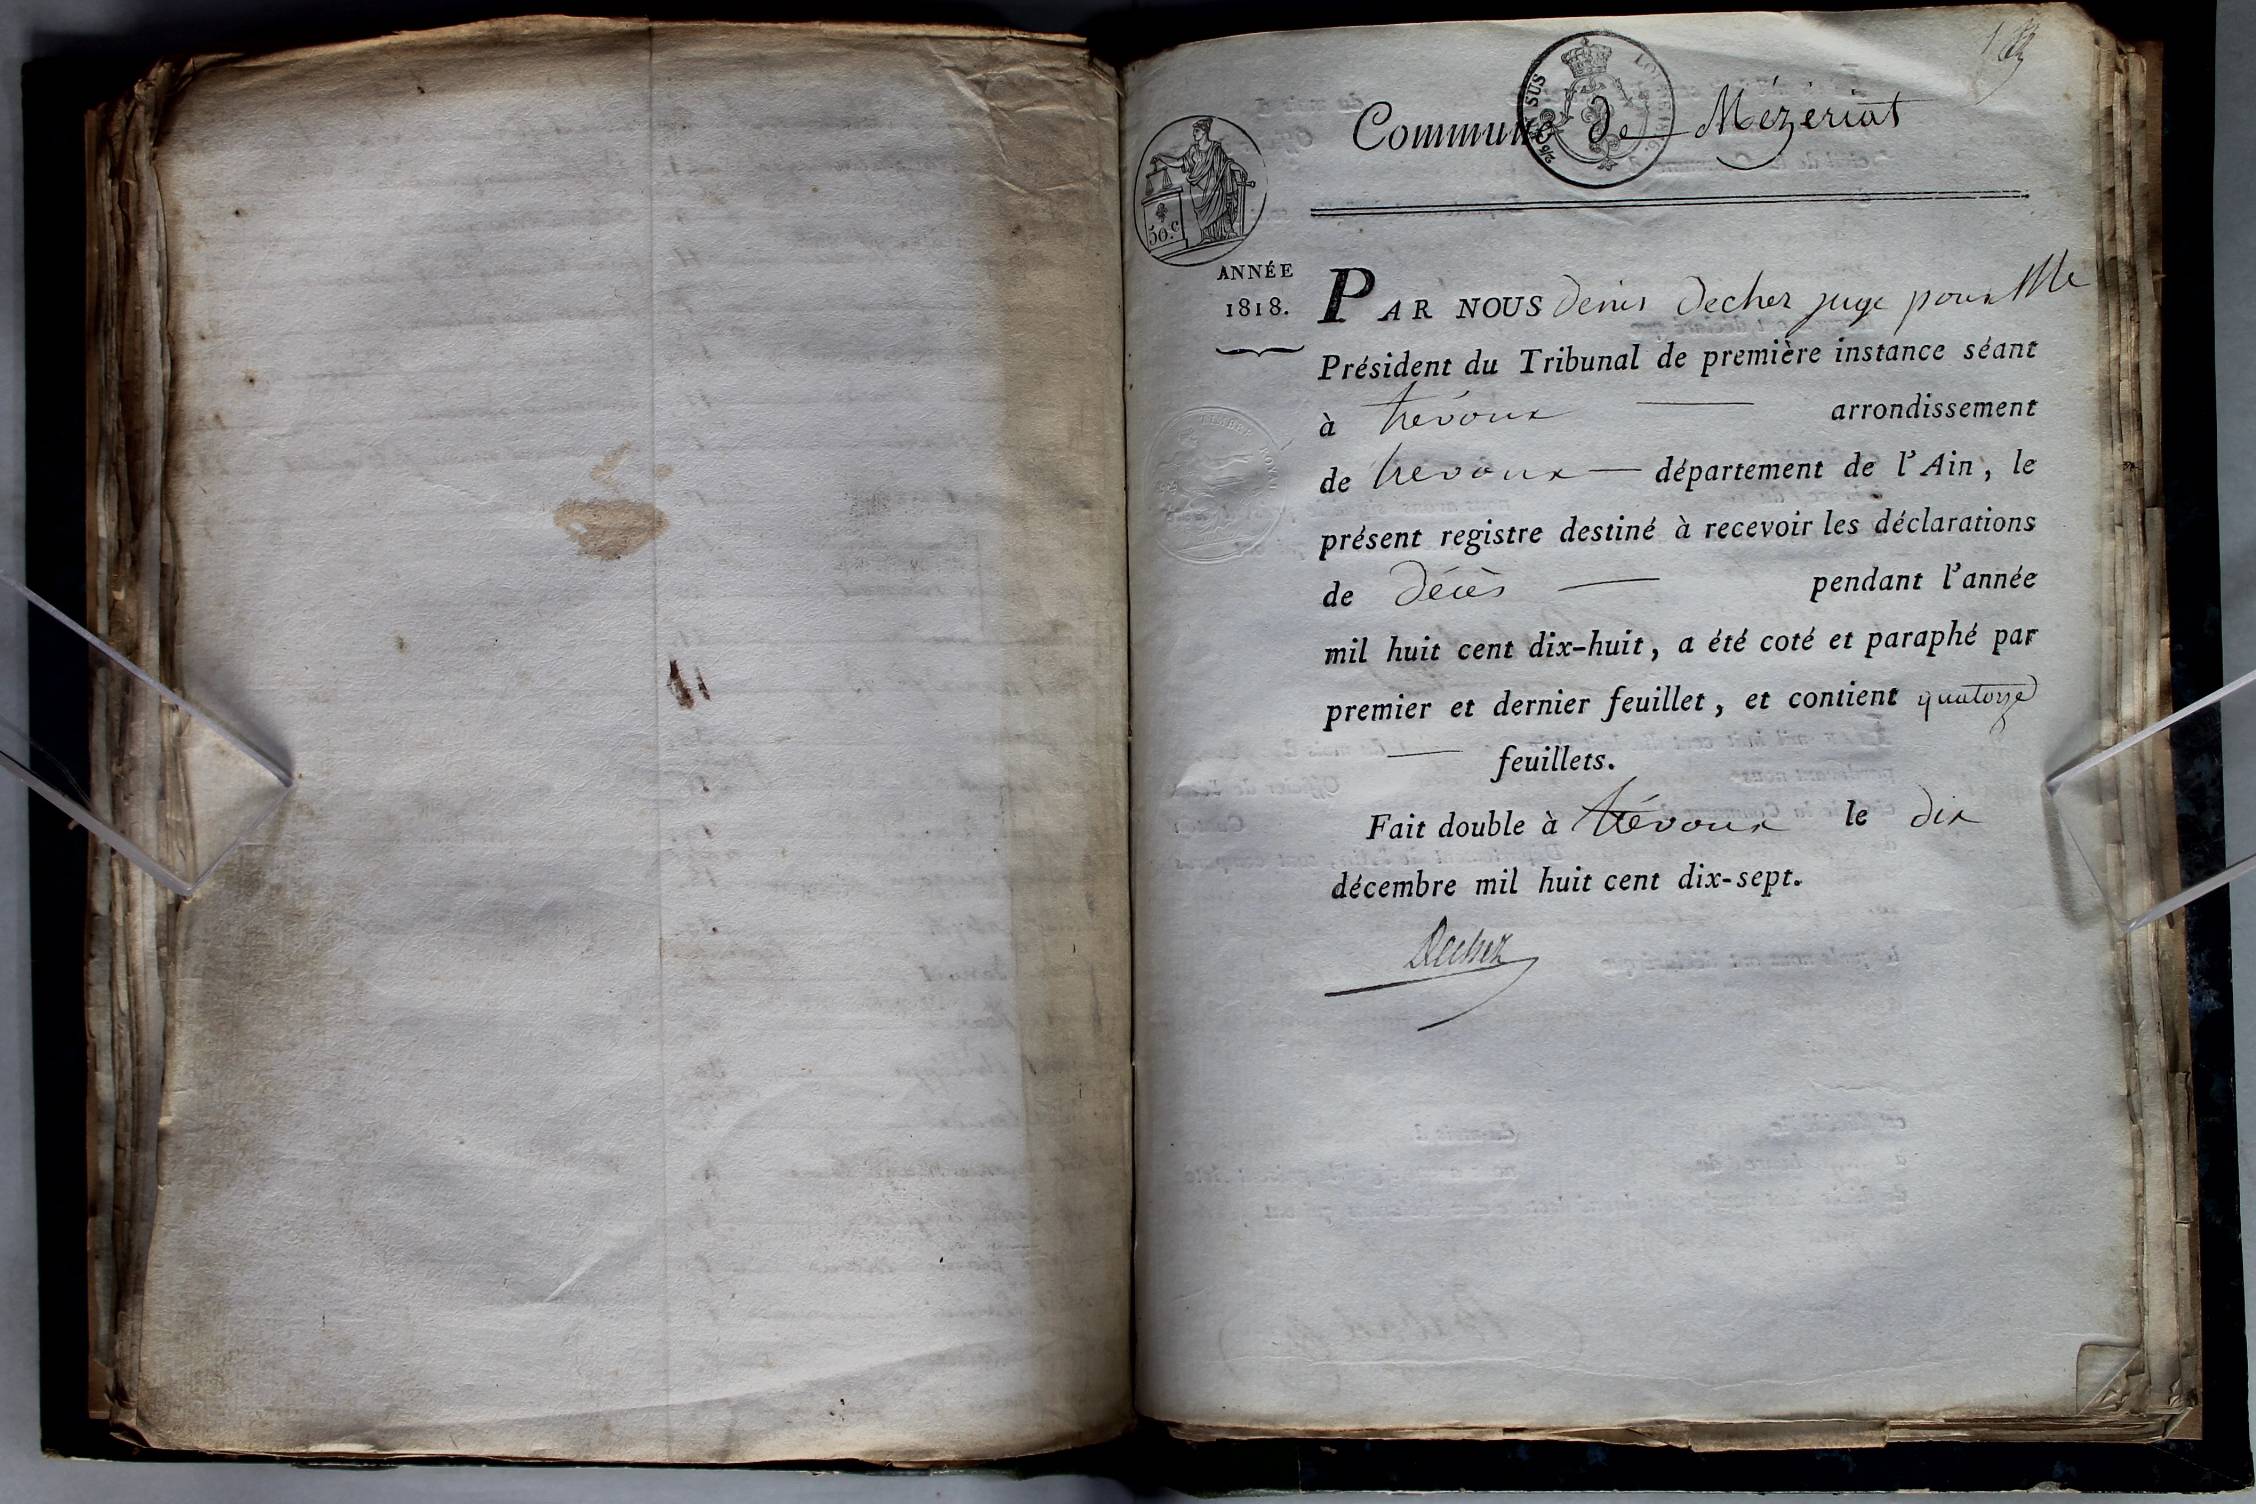 Commune de Mézériat
50.c
ANNÉE
1818.
PAR NOUS denis decher juge pour Mr le
Président du Tribunal de première instance séant
à trévoux arrondissement
de trevoux département de l'Ain, le
présent registre destiné à recevoir les déclarations
de décès pendant l'année
mil huit cent dix-huit, a été coté et paraphé par
premier et dernier feuillet, et contient quatorze
feuillets.
Fait double à trévoux le dix
décembre mil huit cent dix-sept.
Decher